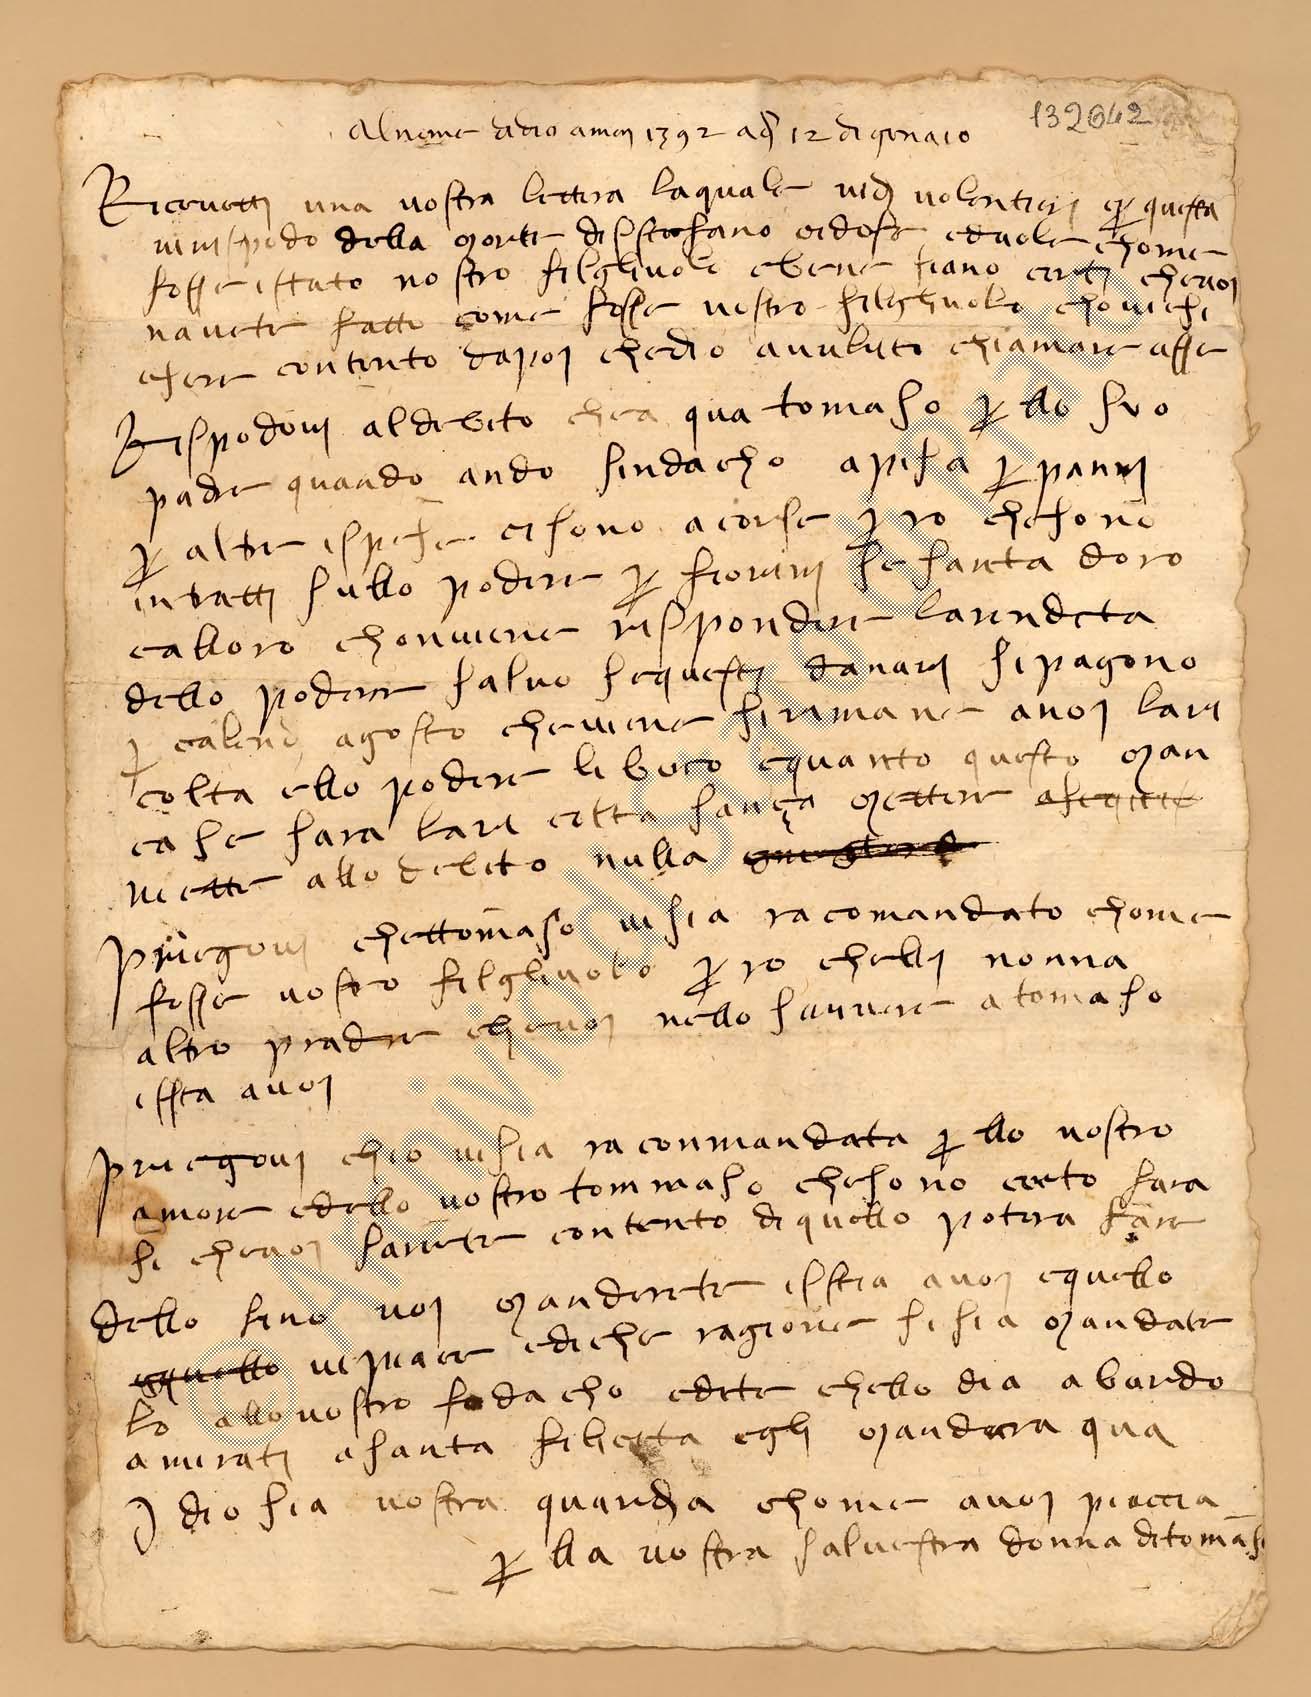 132642
al nome di dio amen 1392 a dì 12 di genaio
Riceuetti una uostra lettera la quale uidi uolentieri e per questa
ui rispodo della morte di Steffano e duole chome
fosse istato nostro filgliuolo e bene siano certi che uoi
n auete fatto come fosse uostro filghuolo chouiensi
esere contento da poi che dio a uuluto chiamare asse
Rispodoui al debito che a qua tomaso per llo suo
padre quando ando sindacho a pisa per panni
per altre ispese ci sono acorse per ro che sono
intratti sullo podere per fiorini sesanta doro
e a lloro chonuiene rispondere la rendeta
dello podere saluo se questi danari si pagono
per calend agosto che uiene si rimane a uoi la ri
colta e llo podere libero e quanto questo man
ca se sara la ri colta sança mettere
mette allo debito nulla
Priegoui chettomaso ui sia racomandato chome
fosse uostro filgliuolo per ro chelli nonna
altro padre che uoi nello seruire a tomaso
issta a uoi
Priegoui ch io ui sia raconmandata per llo uostro
amore e dello uostro tommaso che sono certo fara
si che uoi sarete contento di quello potera fare
dello lino uoi manderete issta a uoi e quello
e quello ui piacie e di che ragione si sia mandate
lo allo uostro fodacho e dite chello dia a burdo
amirati a santa filicita egli mandera qua
Idio sia uostra guardia chome a uoi piaccia
per lla uostra saluestra donna di tomaso
© Archivio di Stato di Prato